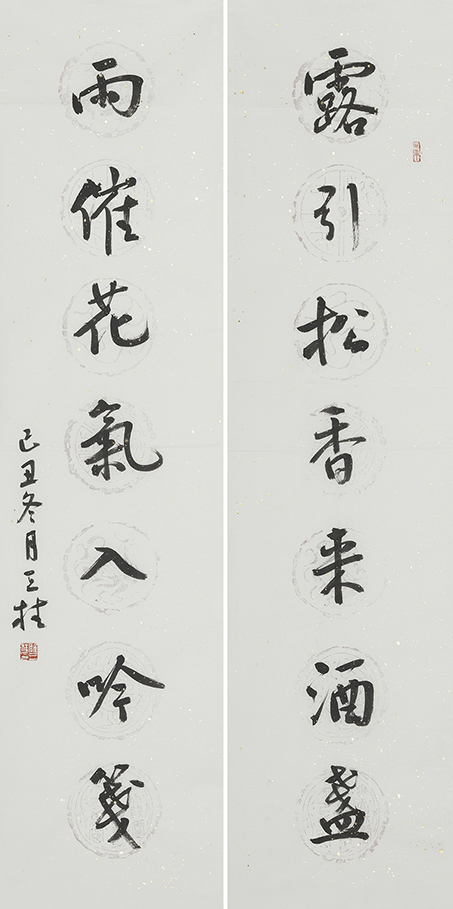 露引松香来酒盏
雨催花氣入吟箋
己丑冬月三桂